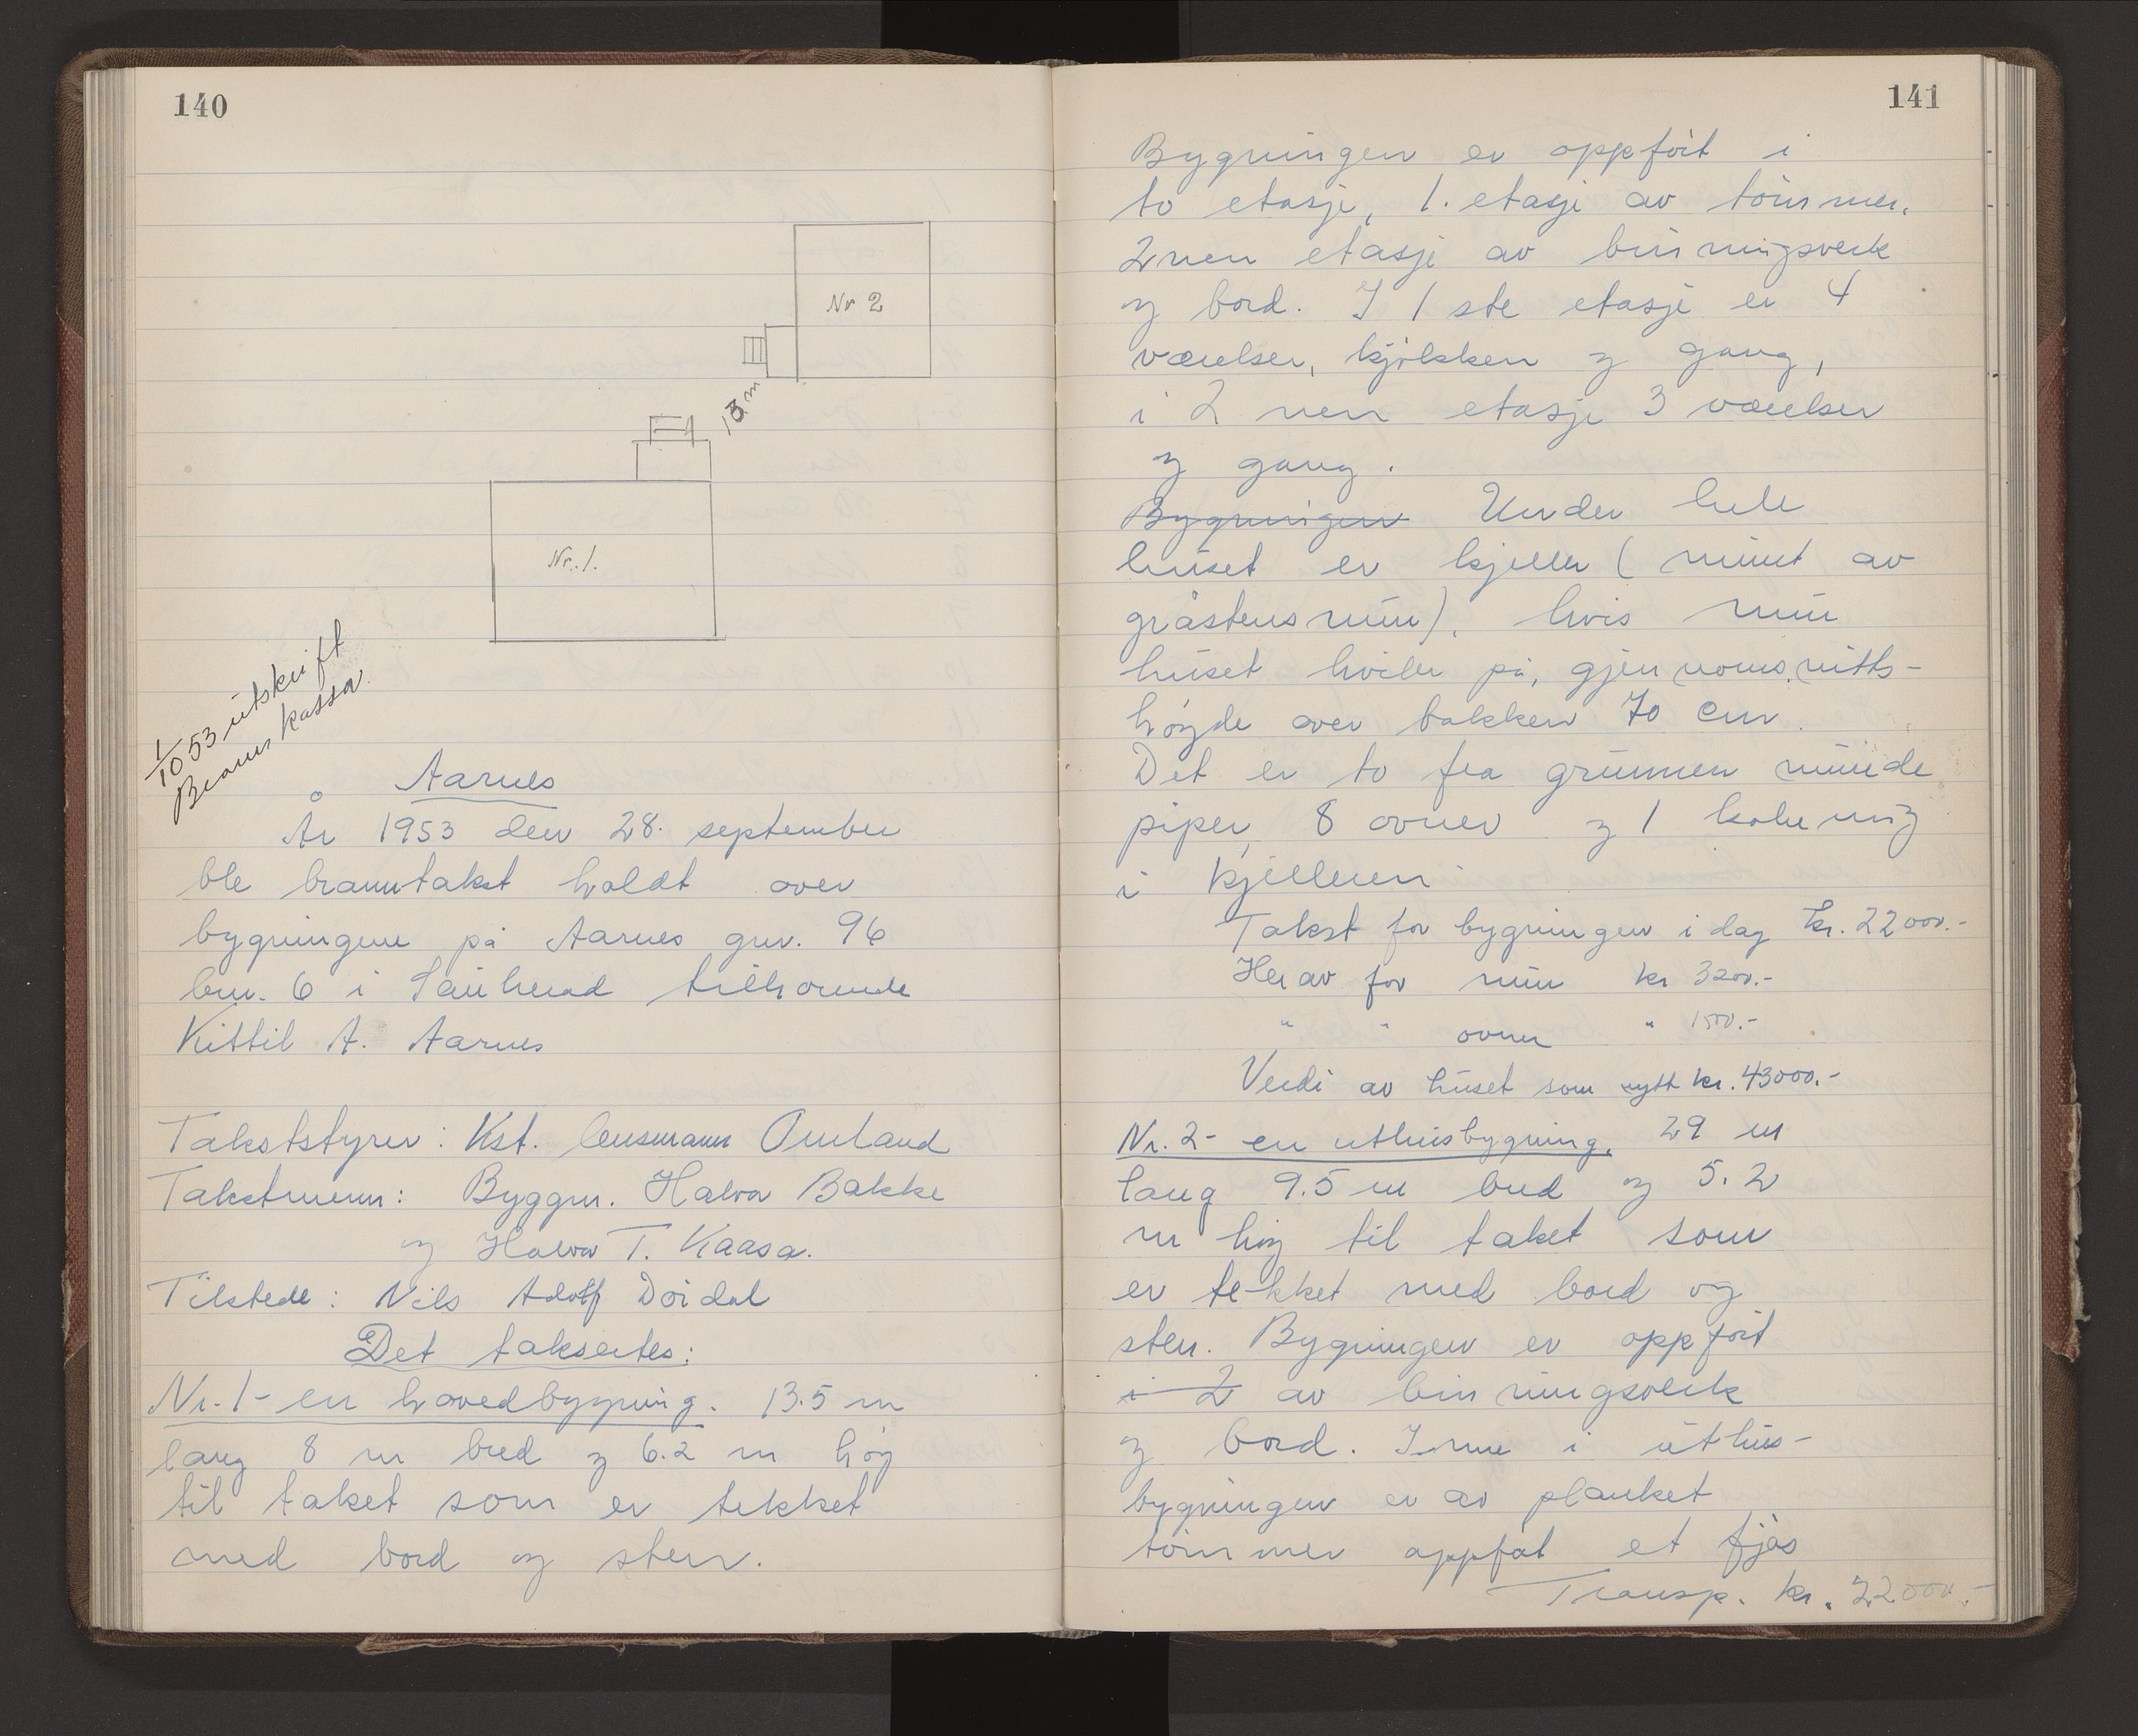 140
Nr 2
13 m
Nr. 1.
1/10 53 utskrift
Brannkassa.
Aarnes
År 1953 den 28. september
ble branntakst holdt over
bygningene på Aarnes gnr. 96
bnr. 6 i Sauherad tilhørende
Kittil A. Aarnes
Takststyrer: Kst. lensmann Omland
Takstmenn: Byggm. Halvor Bakke
og Halvor T. Kaasa.
Tilstede: Nils Adolf Doidal
Det takseertes:
Nr. 1 - en hovedbygning. 13.5 m
lang 8 m bred og 6.2 m høg
til taket som er tekket
med bord og sten.
141
Bygningen er oppført i
to etasje, 1. etasje av tømmer.
2nen etasje av binningsverk
og bord. I 1ste etasje er 4
værelser, kjøkken og gang,
i 2nen etasje 3 værelser
og gang.
Bygningen Under hele
huset er kjeller (muret av
gråstensmur), hvis mur
huset hviler på, gjennomsnitts-
høgde over bakken 70 cm.
Det er to fra grunnen murde
piper, 8 ovner og 1 kokering
i kjelleren
Takst for bygningen i dag kr. 22000.-
Herav for mur kr 3200.-
" " ovner " 1500.-
Verdi av huset som nytt kr. 43000.-
Nr. 2 - en uthusbygning. 29 m
lang 9.5 m bred og 5.2
m høg til taket som
er tekket med bord og
sten. Bygningen er oppført
i 2 av binningsverk
og bord. Inne i uthus-
bygningen er av planket
tømmer oppført et fjøs
Transp. kr. 22000.-